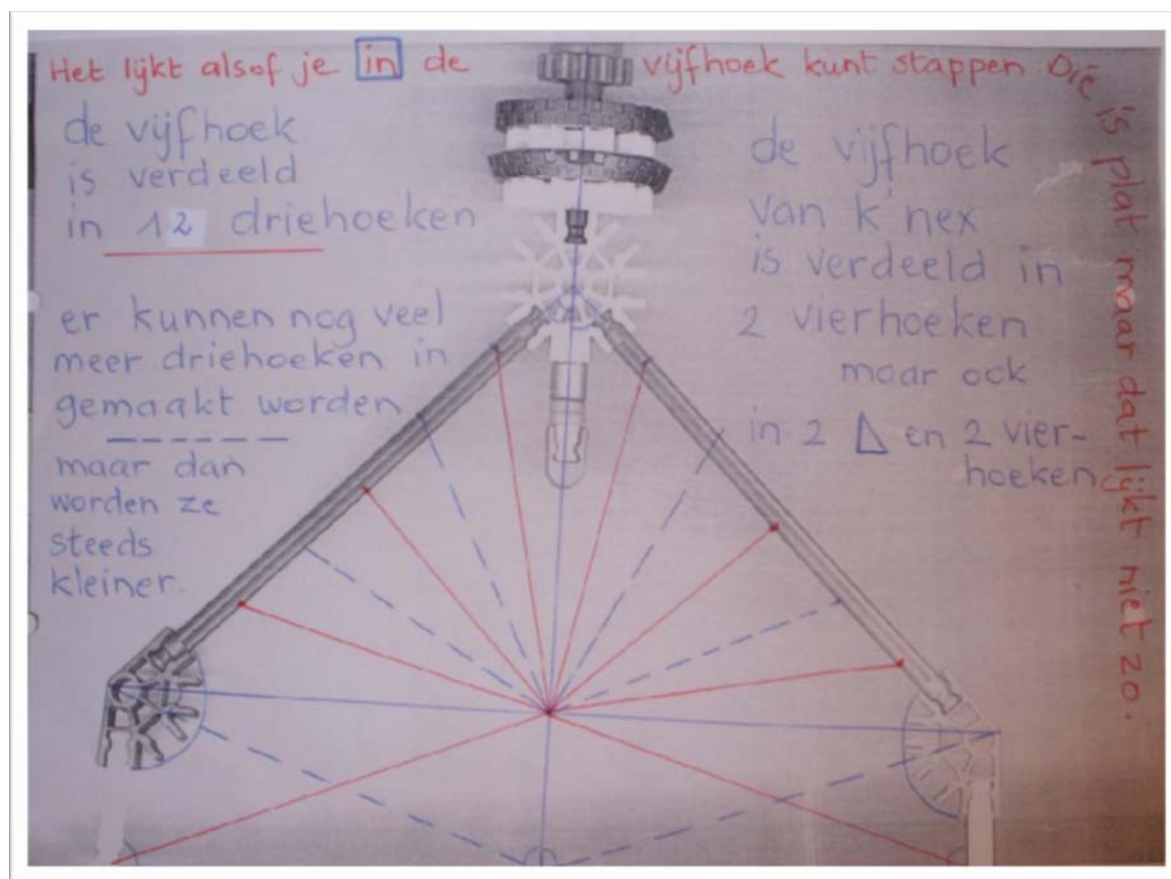 Het lijkt alsof je in de vijfhoek kunt stappen. Die is plat maar dat lijkt niet zo.
de vijfhoek
is verdeeld
in 12 driehoeken
er kunnen nog veel
meer driehoeken in
gemaakt worden
maar dan
worden ze
steeds
kleiner.
de vijfhoek
van k'nex
is verdeeld in
2 vierhoeken
maar ook
in 2 Δ en 2 vier-
hoeken